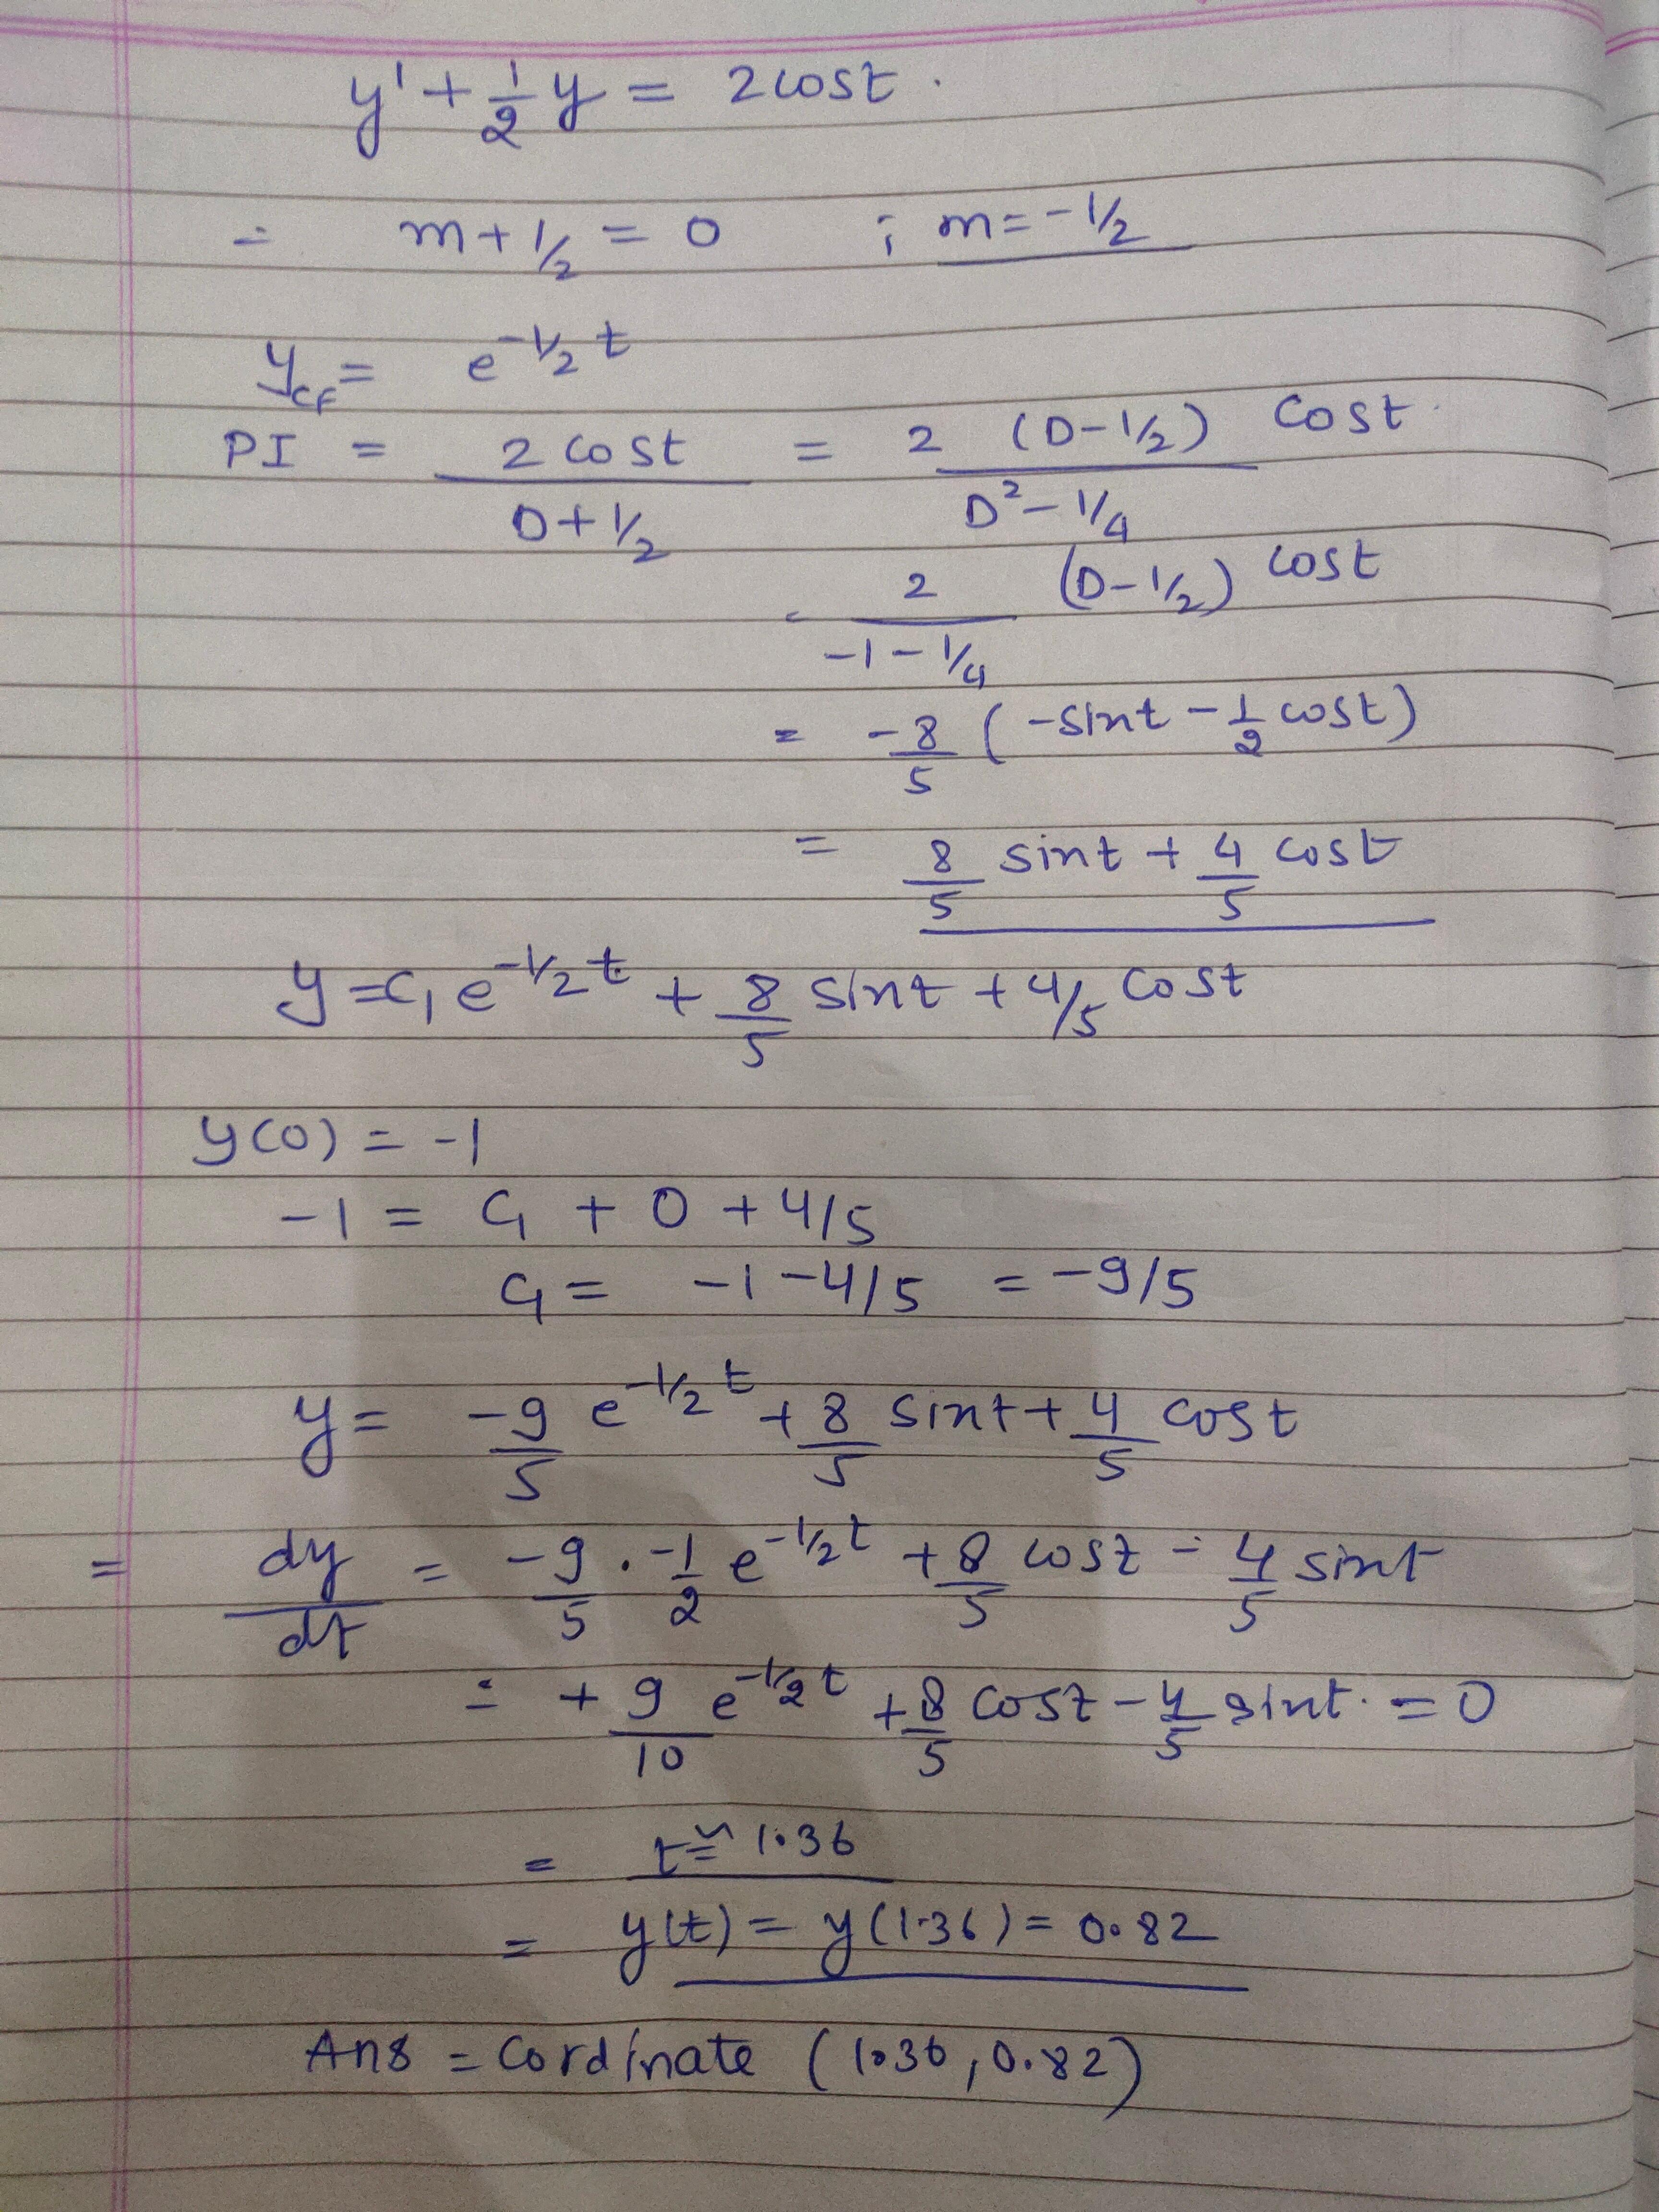 y' + 1/2 y = 2 cost .
= m + 1/2 = 0 ; m = -1/2
y_CF = e^{-1/2 t}
PI = 2 cost / (D + 1/2) = 2 (D - 1/2) cost / (D² - 1/4)
= 2 / (-1 - 1/4) (D - 1/2) cost
= -8/5 ( -sint - 1/2 cost )
= 8/5 sint + 4/5 cost
y = C₁ e^{-1/2 t} + 8/5 sint + 4/5 cost
y(0) = -1
-1 = C₁ + 0 + 4/5
C₁ = -1 - 4/5 = -9/5
y = -9/5 e^{-1/2 t} + 8/5 sint + 4/5 cost
= dy/dt = -9/5 . -1/2 e^{-1/2 t} + 8/5 cost - 4/5 sint
= + 9/10 e^{-1/2 t} + 8/5 cost - 4/5 sint . = 0
= t ≃ 1.36
= y(t) = y(1.36) = 0.82
Ans = Cordinate (1.36, 0.82)